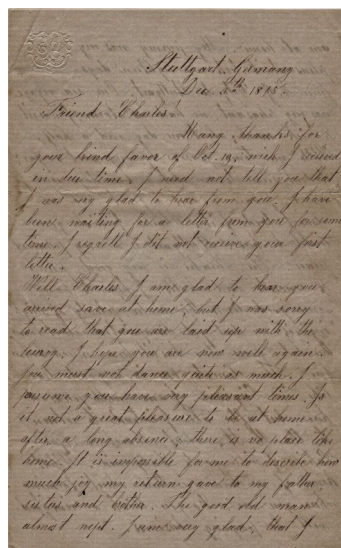 Stuttgart, Germany
Dec. 8th 1865.
Friend Charles!
Many thanks for
your kind favor of Oct. 19. wich I received
in due time. I need not tell you that
I was very glad to hear from you. I have
been waiting for a letter from you for some
time. I regrett I did not receive your first
letter.
Well Charles I am glad to hear you
arrived save at home, but I was sorry
to read that you are laid up with the
I hope you are now well again.
You must not dance quite as much. I
you have very pleasant times. Is
it not a great pleasure to be at home
after a long absence, there is no place like
home. It is impossible for me to describe how
much joy my return gave to my father
sisters and brother. The good old man
almost wept. I am very glad that I